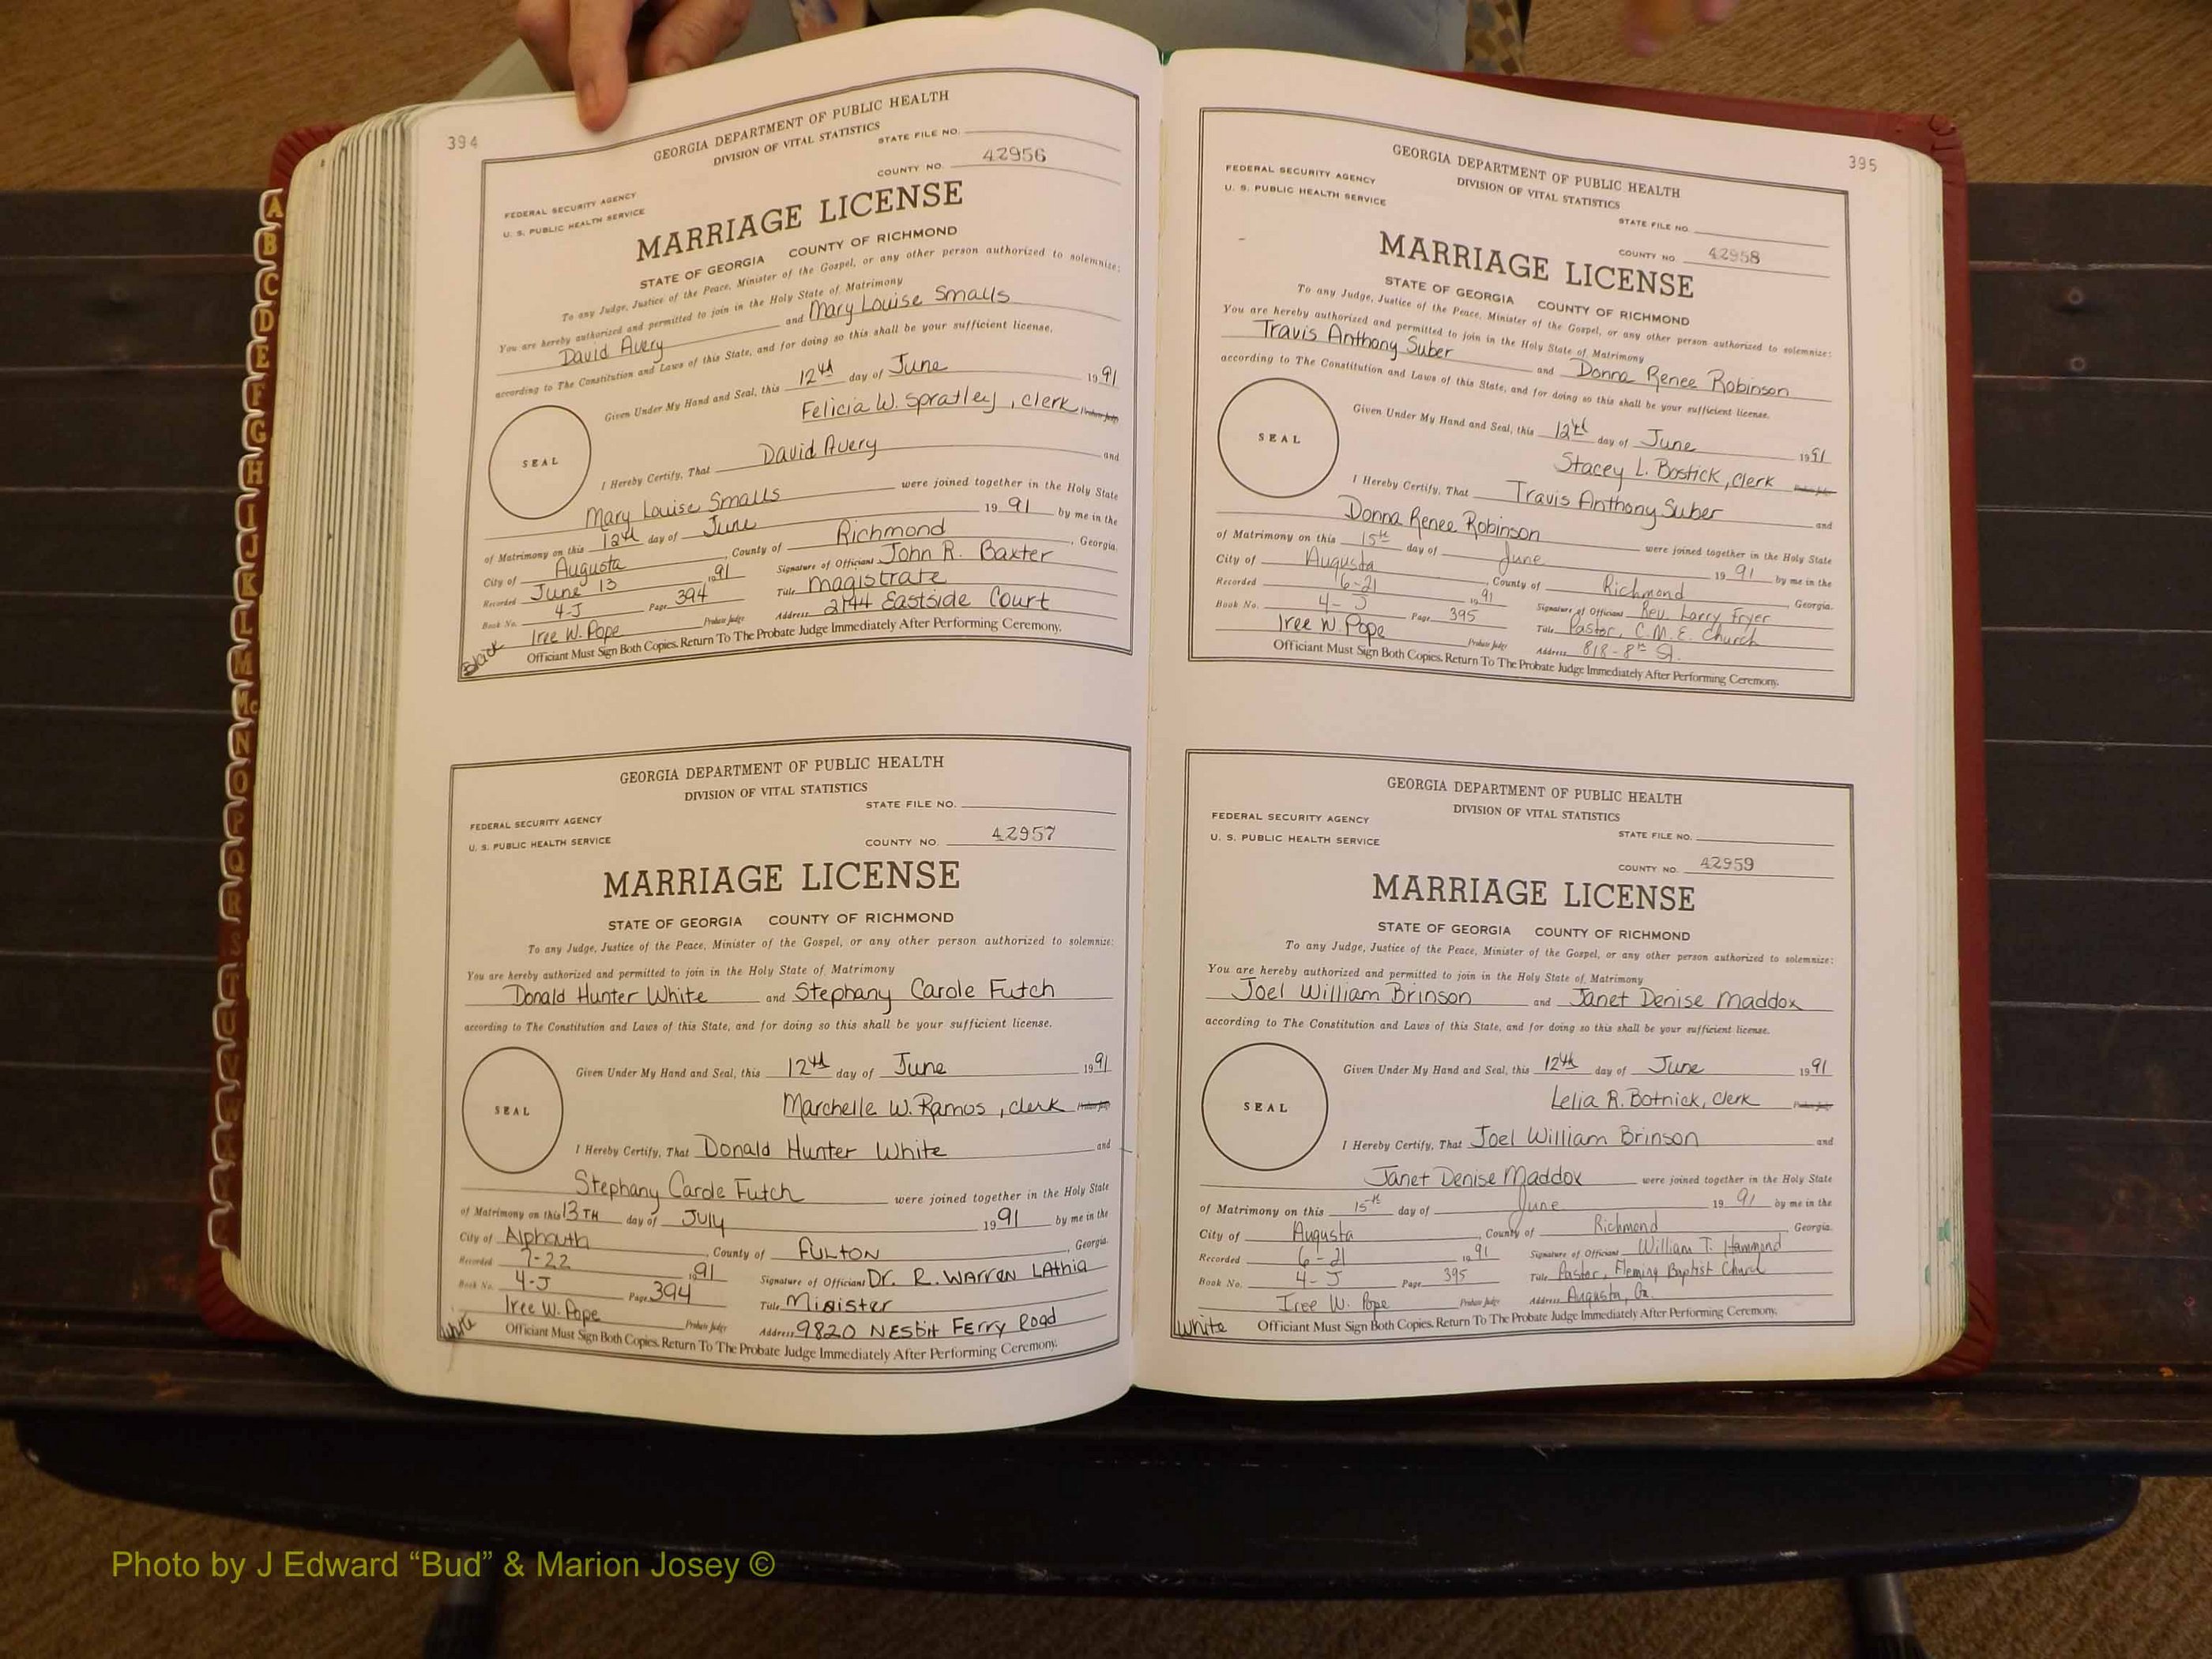 394
GEORGIA DEPARTMENT OF PUBLIC HEALTH
DIVISION OF VITAL STATISTICS
STATE FILE NO.
COUNTY NO. 42956
FEDERAL SECURITY AGENCY
U. S. PUBLIC HEALTH SERVICE
MARRIAGE LICENSE
STATE OF GEORGIA COUNTY OF RICHMOND
To any Judge, Justice of the Peace, Minister of the Gospel, or any other person authorized to solemnize:
You are hereby authorized and permitted to join in the Holy State of Matrimony
David Avery and Mary Louise Smalls
according to The Constitution and Laws of this State, and for doing so this shall be your sufficient license.
Given Under My Hand and Seal, this 12th day of June 1991
Felicia W. Spratley, clerk Probate Judge
SEAL
I Hereby Certify, That David Avery and
Mary Louise Smalls were joined together in the Holy State
of Matrimony on this 12th day of June 1991 by me in the
City of Augusta, County of Richmond, Georgia.
Recorded June 13 1991 Signature of Officiant John R. Baxter
Book No. 4-J Page 394 Title Magistrate
Iree W. Pope Probate Judge Address 2144 Eastside Court
Officiant Must Sign Both Copies. Return To The Probate Judge Immediately After Performing Ceremony.
Black
GEORGIA DEPARTMENT OF PUBLIC HEALTH
DIVISION OF VITAL STATISTICS
STATE FILE NO.
FEDERAL SECURITY AGENCY
U. S. PUBLIC HEALTH SERVICE
COUNTY NO. 42957
MARRIAGE LICENSE
STATE OF GEORGIA COUNTY OF RICHMOND
To any Judge, Justice of the Peace, Minister of the Gospel, or any other person authorized to solemnize:
You are hereby authorized and permitted to join in the Holy State of Matrimony
Donald Hunter White and Stephany Carole Futch
according to The Constitution and Laws of this State, and for doing so this shall be your sufficient license.
Given Under My Hand and Seal, this 12th day of June 1991
Marchelle W. Ramos, clerk Probate Judge
SEAL
I Hereby Certify, That Donald Hunter White and
Stephany Carole Futch were joined together in the Holy State
of Matrimony on this 13TH day of JULY 1991 by me in the
City of Alpharuth, County of FULTON, Georgia.
Recorded 7-22 1991 Signature of Officiant Dr. R. WARREN LAthia
Book No. 4-J Page 394 Title Minister
Iree W. Pope Probate Judge Address 9820 NESbit FERRY Road
Officiant Must Sign Both Copies. Return To The Probate Judge Immediately After Performing Ceremony.
White
395
GEORGIA DEPARTMENT OF PUBLIC HEALTH
DIVISION OF VITAL STATISTICS
FEDERAL SECURITY AGENCY
U. S. PUBLIC HEALTH SERVICE
STATE FILE NO.
COUNTY NO. 42958
MARRIAGE LICENSE
STATE OF GEORGIA COUNTY OF RICHMOND
To any Judge, Justice of the Peace, Minister of the Gospel, or any other person authorized to solemnize:
You are hereby authorized and permitted to join in the Holy State of Matrimony
Travis Anthony Suber and Donna Renee Robinson
according to The Constitution and Laws of this State, and for doing so this shall be your sufficient license.
Given Under My Hand and Seal, this 12th day of June 1991
Stacey L. Bostick, clerk Probate Judge
SEAL
I Hereby Certify, That Travis Anthony Suber and
Donna Renee Robinson were joined together in the Holy State
of Matrimony on this 15th day of June 1991 by me in the
City of Augusta, County of Richmond Georgia.
Recorded 6-21 1991 Signature of Officiant Rev. Larry Fryer
Book No. 4-J Page 395 Title Pastor, C.M.E. Church
Iree W. Pope Probate Judge Address 818-8th St.
Officiant Must Sign Both Copies. Return To The Probate Judge Immediately After Performing Ceremony.
GEORGIA DEPARTMENT OF PUBLIC HEALTH
DIVISION OF VITAL STATISTICS
FEDERAL SECURITY AGENCY
U. S. PUBLIC HEALTH SERVICE
STATE FILE NO.
COUNTY NO. 42959
MARRIAGE LICENSE
STATE OF GEORGIA COUNTY OF RICHMOND
To any Judge, Justice of the Peace, Minister of the Gospel, or any other person authorized to solemnize:
You are hereby authorized and permitted to join in the Holy State of Matrimony
Joel William Brinson and Janet Denise Maddox
according to The Constitution and Laws of this State, and for doing so this shall be your sufficient license.
Given Under My Hand and Seal, this 12th day of June 1991
Lelia R. Botnick, clerk Probate Judge
SEAL
I Hereby Certify, That Joel William Brinson and
Janet Denise Maddox were joined together in the Holy State
of Matrimony on this 15th day of June 1991 by me in the
City of Augusta, County of Richmond Georgia.
Recorded 6-21 1991 Signature of Officiant William T. Hammond
Book No. 4-J Page 395 Title Pastor, Fleming Baptist Church
Iree W. Pope Probate Judge Address Augusta, Ga.
Officiant Must Sign Both Copies. Return To The Probate Judge Immediately After Performing Ceremony.
White
A
B
C
D
E
F
G
H
I
J
K
L
M
Mc
N
O
P
Q
R
S
T
U
V
W
Photo by J Edward “Bud” & Marion Josey ©